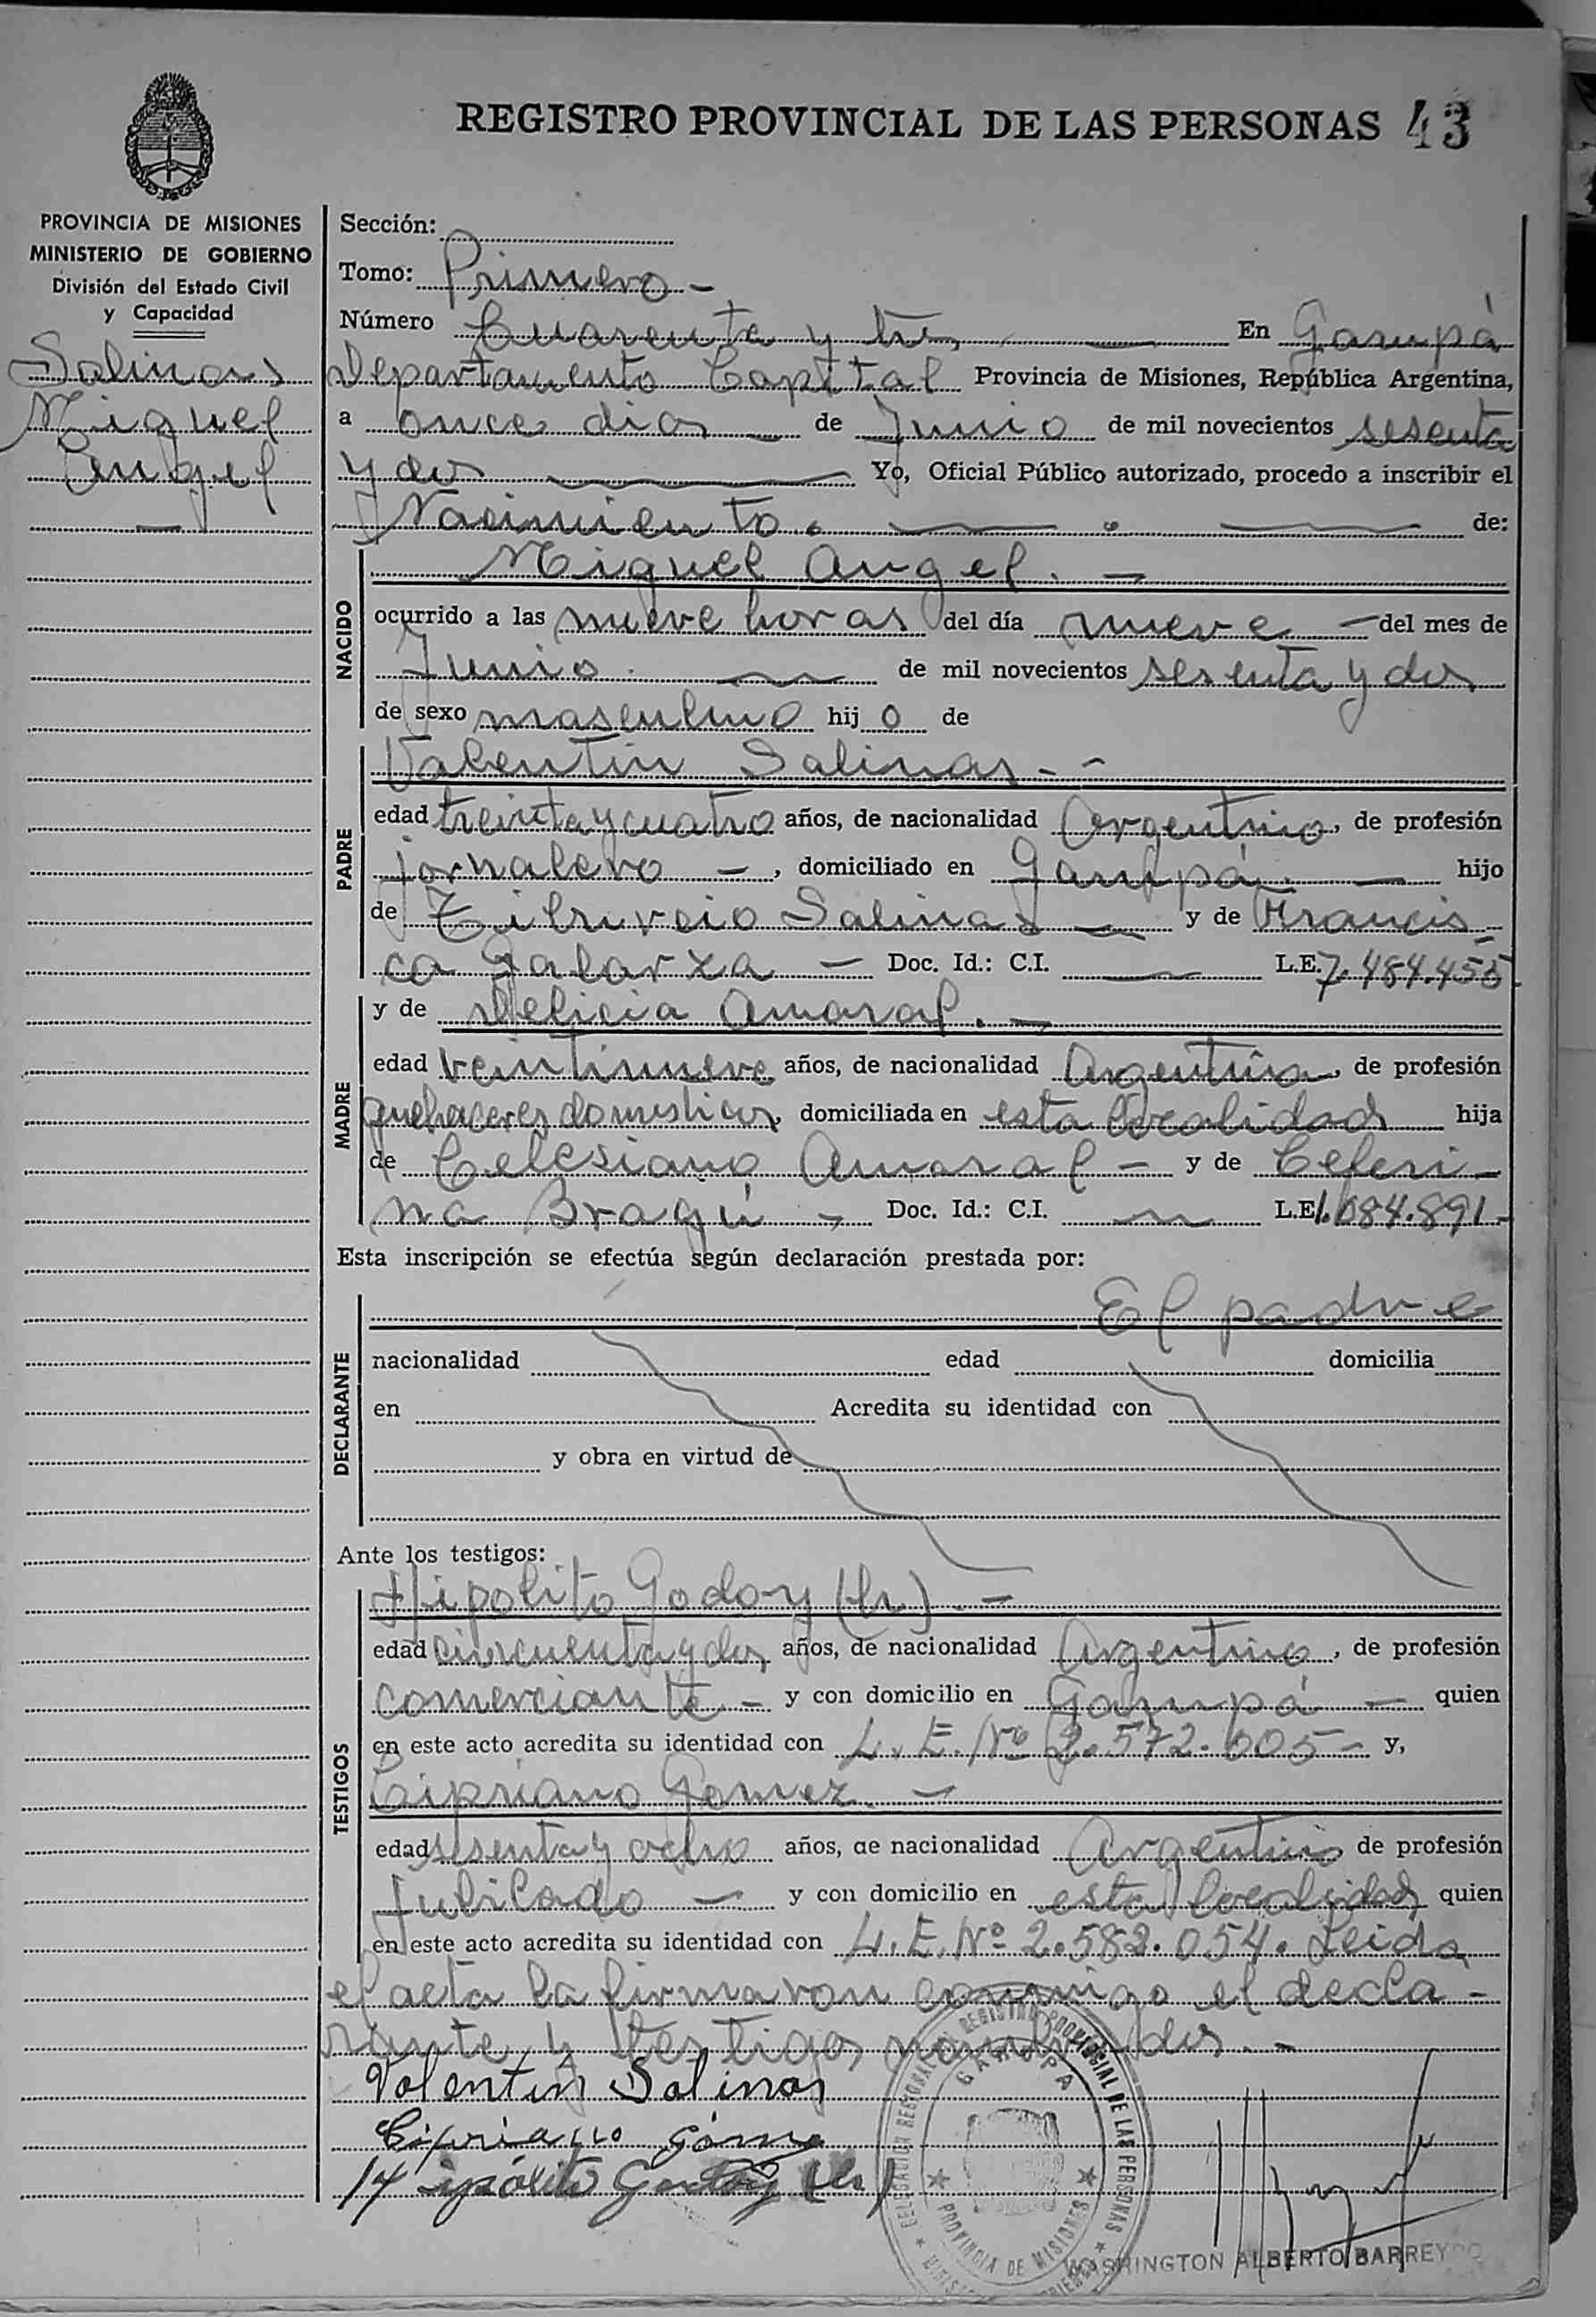 REGISTRO PROVINCIAL DE LAS PERSONAS 43
PROVINCIA DE MISIONES
MINISTERIO DE GOBIERNO
División del Estado Civil
y Capacidad
Salinas
Miguel
Angel
Sección:
Tomo: Primero -
Número Cuarenta y tres En Garupá
Departamento Capital Provincia de Misiones, República Argentina,
a once dias de Junio de mil novecientos sesenta
y dos Yo, Oficial Público autorizado, procedo a inscribir el
Nacimiento. de:
NACIDO
Miguel Angel. -
ocurrido a las nueve horas del día nueve - del mes de
Junio. de mil novecientos sesenta y dos
de sexo masculino hij o de
PADRE
Valentin Salinas. -
edad treinta y cuatro años, de nacionalidad Argentino, de profesión
jornalero -, domiciliado en Garupá. - hijo
de Salinas y de Francis-
ca Galarza - Doc. Id.: C.I. L.E. 7.484.455
MADRE
y de Delicia Amaral. -
edad veintinueve años, de nacionalidad Argentina, de profesión
quehaceres domesticos, domiciliada en esta localidad hija
de Celesiano Amaral - y de Celeri-
na Bragú - Doc. Id.: C.I. L.E. 1.684.891-
Esta inscripción se efectúa según declaración prestada por:
DECLARANTE
El padre
nacionalidad edad domicilia
en Acredita su identidad con
y obra en virtud de
Ante los testigos:
TESTIGOS
Hipolito Godoy (h). -
edad cincuenta y dos años, de nacionalidad Argentino, de profesión
comerciante - y con domicilio en Garupá - quien
en este acto acredita su identidad con L. E. Nº 2.572.605 - y,
Cipriano Gomez. -
edad sesenta y ocho años, de nacionalidad Argentino de profesión
Jubilado - y con domicilio en esta localidad quien
en este acto acredita su identidad con L. E. Nº 2.582.054. Leida
el acta la firmaron conmigo el decla-
rante y testigos nombrados. -
Valentin Salinas
Cipriano Gómez
Hipólito Godoy (h)
GARUPA
DELEGACION REGIONAL REGISTRO PROVINCIAL DE LAS PERSONAS
PROVINCIA DE MISIONES
WASHINGTON ALBERTO BARREYRO